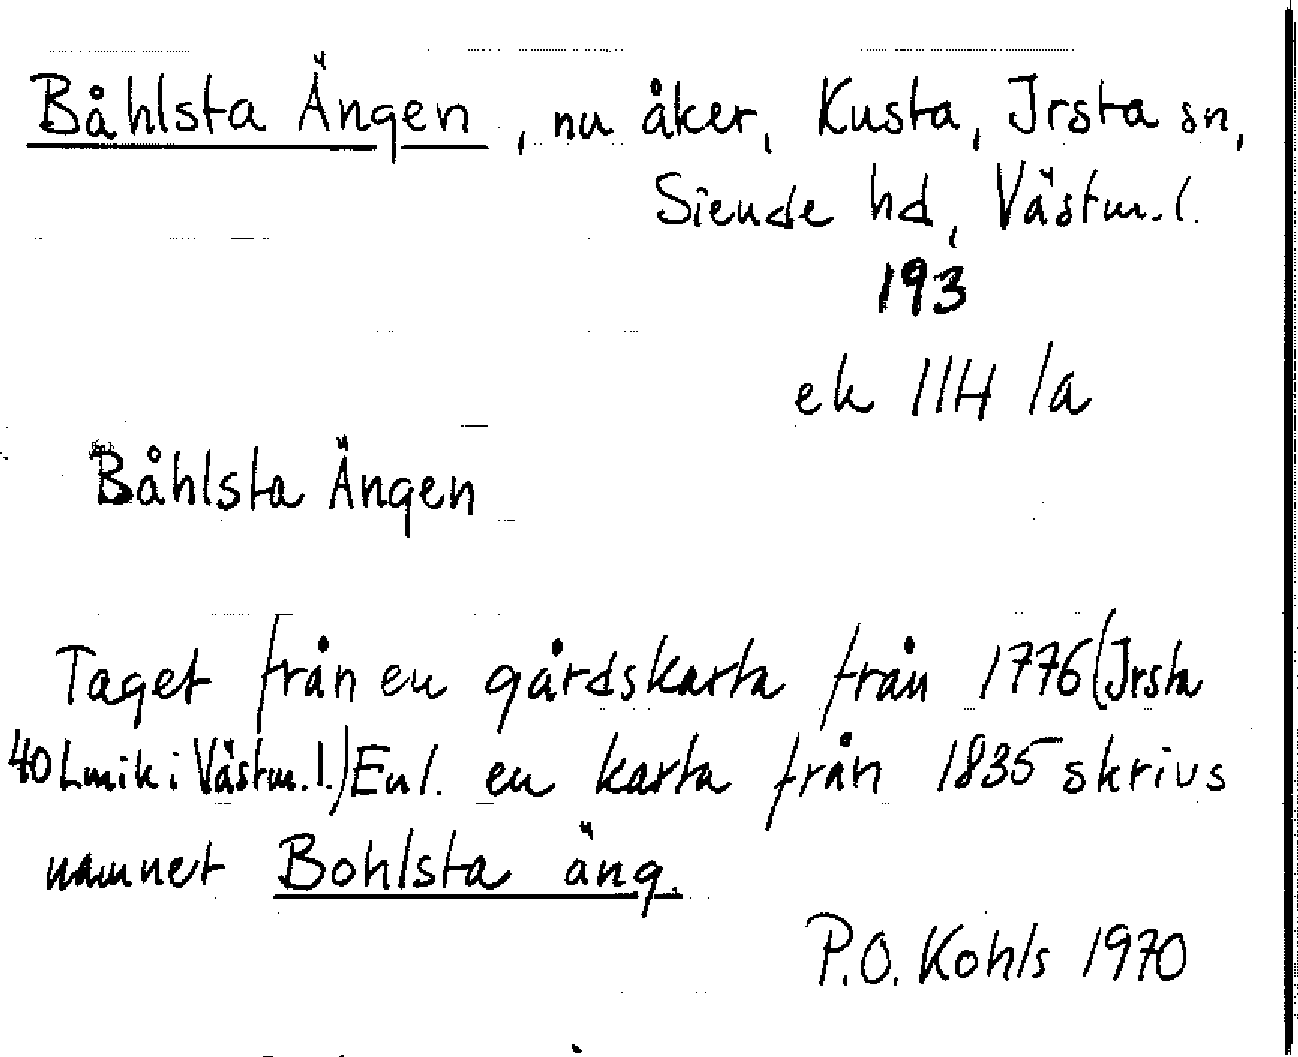 Båhlsta Ängen, nu åker, Kusta, Irsta sn,
Siende hd, Västm. l.
193
ek 11H 1a
Båhlsta Ängen
Taget från en gårdskarta från 1776 (Irsta
40 Lmik i Västm. l.) Enl. en karta från 1835 skrivs
namnet Bohlsta äng.
P.O. Kohls 1970